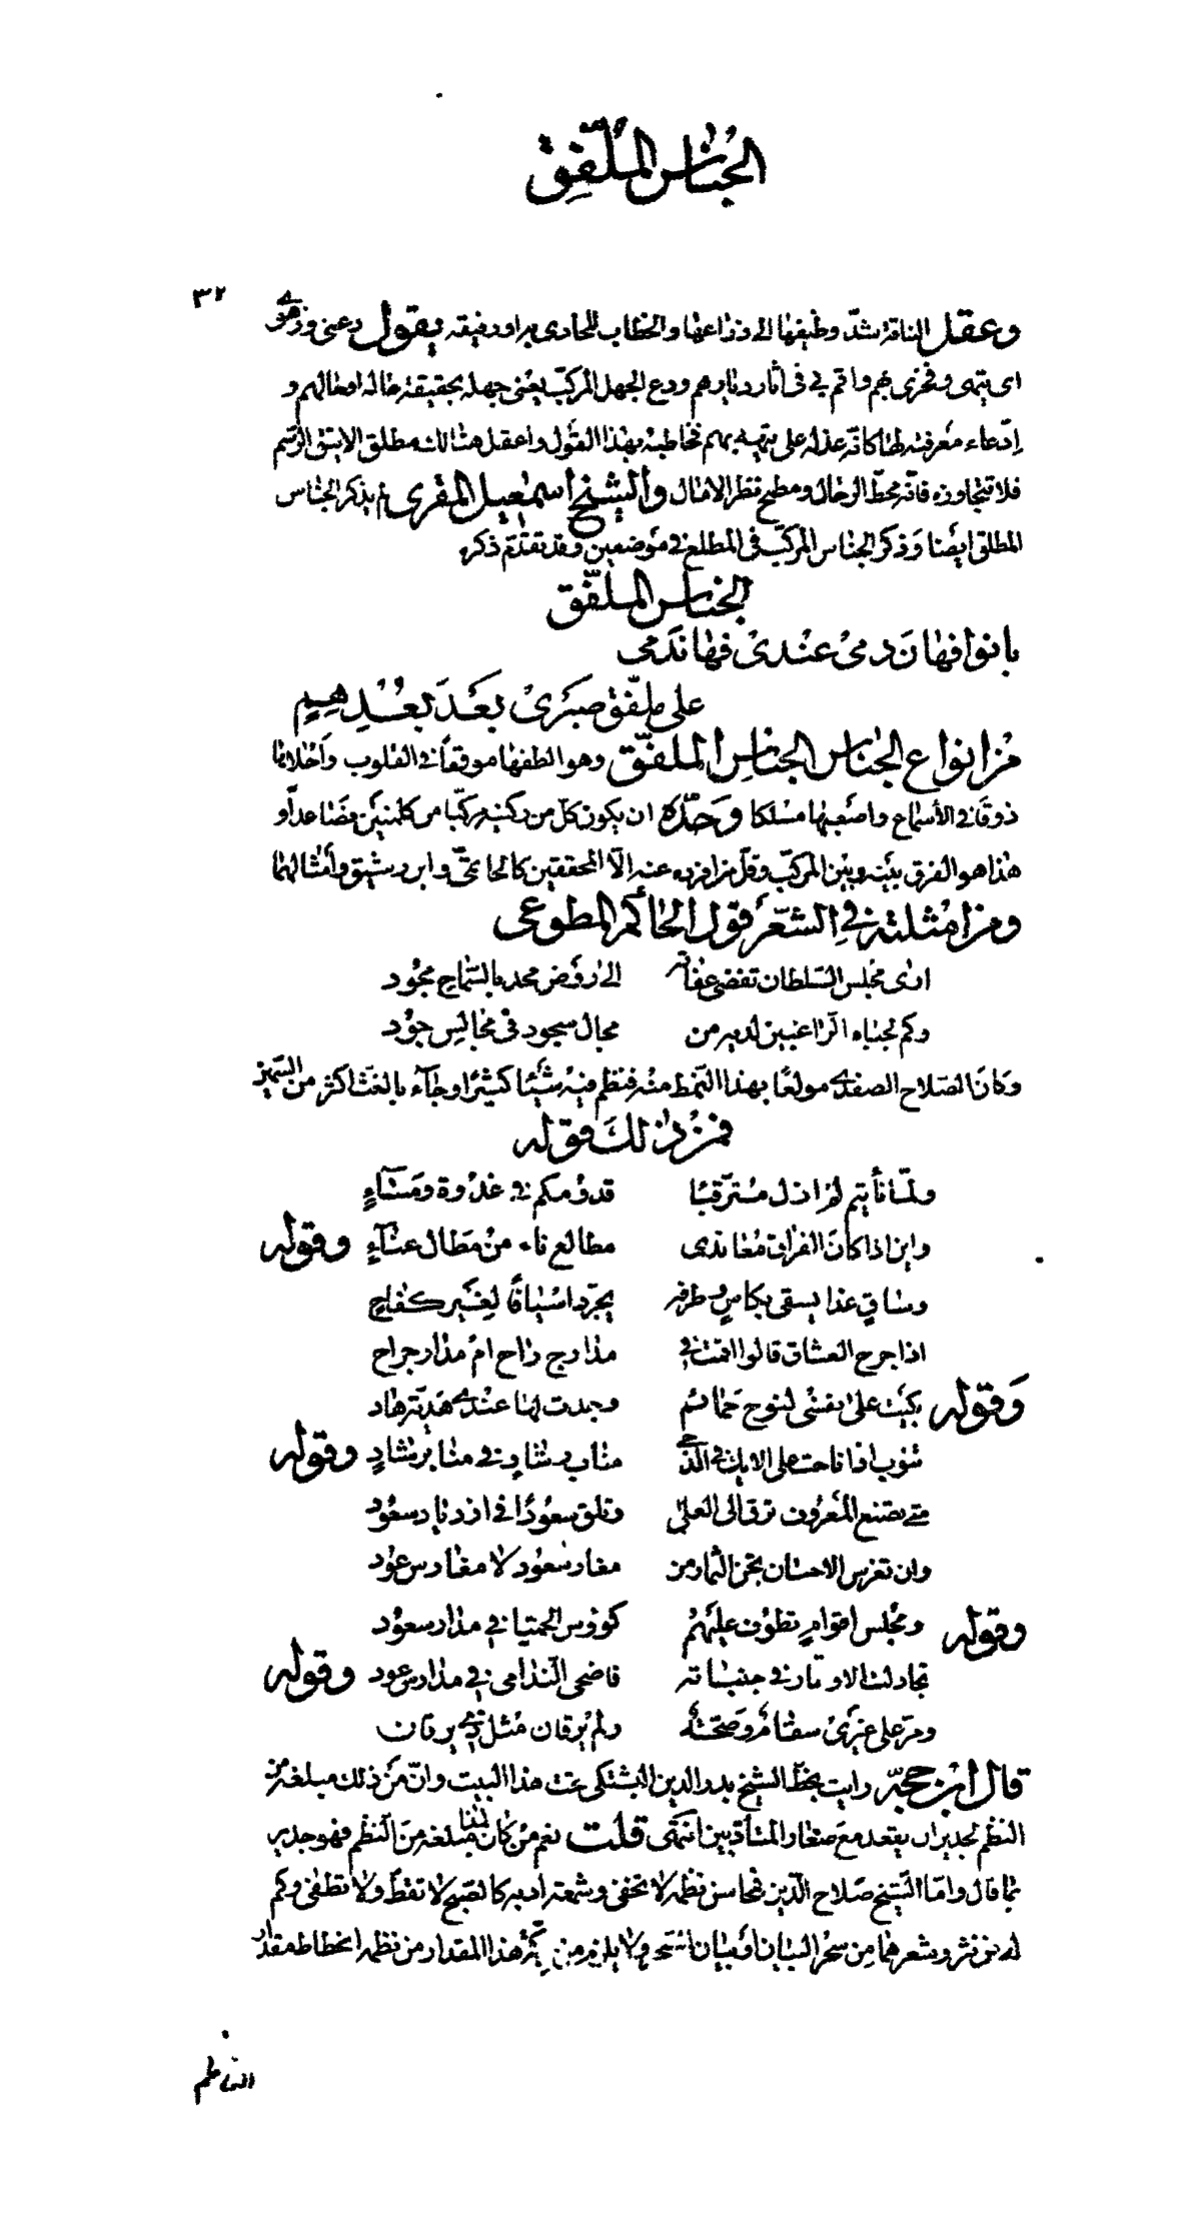 الجناس الملفق
٣٢
وعقل الناقة شدّ وظيفها الى ذراعها والخطاب للحادى به او رفيقه يقول دعنى وزهوى
اى تيهى وفخرى بهم واقم بى فى اثار ديارهم ودع الجهل المركب يعنى جهله بحقيقة حاله اوحالهم و
ادّعاء معرفته لها كانّه عذله على تيهه بهم فخاطبه بهذا القول واعقل هنالك مطلق الاينق الرّسم
فلا تتجاوزه فانّه محطّ الرحال ومطمح نظر الامال والشيخ اسمعيل المقرى لم يذكر الجناس
المطلق ايضا وذكر الجناس المركّب فى المطلع فى موضعين وقد تقدّم ذكره
الجناس الملفّق
بانوا فهان دمى عندى فها ندمى
على ملفّق صبرى بعد بعدهم
من انواع الجناس الجناس الملفّق وهو الطفها موقعا فى القلوب واحلاها
ذوقا فى الأسماع واصعبها مسلكا وحدّه ان يكون كلّ من ركنيه مركّبا من كلمتين فصاعدا و
هذا هو الفرق بينه وبين المركّب وقلّ من افرده عنه الّا المحققين كالحاتمىّ وابن رشيق وأمثالهما
ومن امثلته فى الشّعر قول الحاكم المطوعى
ارى مجلس السّلطان تفضى عفاته الى روض مجد بالسّماح مجود
وكم لجباه الرّاغبين لديه من مجال سجود فى مجالس جود
وكان الصّلاح الصفدى مولعا بهذا النّمط منه فنظم فيه شيئا كثيرا وجاء بالغثّ اكثر من السّمين
فمن ذلك قوله
ولمّا نأيتم لم ازل مترقبا قدومكم فى غدوة ومساء
واين اذا كان الفراق معاندى مطالع ناء من مطال عناء وقوله
وساق غدا يسقى بكاس وطرفه يجرّد اسيافا لغير كفاح
اذا جرح العشاق قالوا اقمت فى مدارج راح ام مدار جراح
وقوله بكيت على نفسى لنوح حمائم وجدت لها عندى هديّة هاد
تنوب اذا ناحت على الايك فى الدّجى مناب رشاد فى منابر شاد وقوله
متى تصنع المعروف ترق الى العلى وتلق سعودا فى ازدياد سعود
وان تغرس الاحسان تجن الثمار من مغار سعود لا مغارس عود
وقوله ومجلس اقوام تطوف عليهم كؤوس الحميا فى مدار سعود
تجادلت الاوتار فى جنباته فاضحى النّدامى فى مدارس عود وقوله
ومرّ على غيرى سقامه وصحّته ولم يرقان مثل ذى يرقان
قال ابن حجّة رايت بخطّ الشيخ بدر الدين البشتكى تحت هذا البيت وانّ من ذلك مبلغه من
النظم لجدير ان يقعد مع صغار المتأدّبين انتهى قلت نعم من كان هذا مبلغه من النّظم فهو جدير
بما قال وامّا الشّيخ صلاح الدّين فمحاسن نظمه لا تخفى وشمعة ادبه كالصّبح لا تقطّ ولا تطفى وكم
له من نثر وشعر هما من سحر البيان او بيان السّحر ولا يلزم من نزر هذا المقدار من نظمه انحطاط مقدار
الناظم